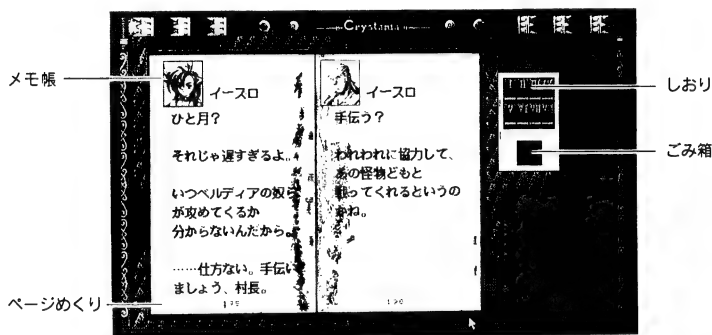 Crystania
メモ帳
しおり
ごみ箱
ページめくり
イースロ
ひと月?
それじゃ遅すぎるよ。
いつベルディアの奴ら
が攻めてくるか
分からないんだから。
……仕方ない。手伝い
ましょう、村長。
イースロ
手伝う?
われわれに協力して、
あの怪物どもと
戦ってくれるというの
かね。